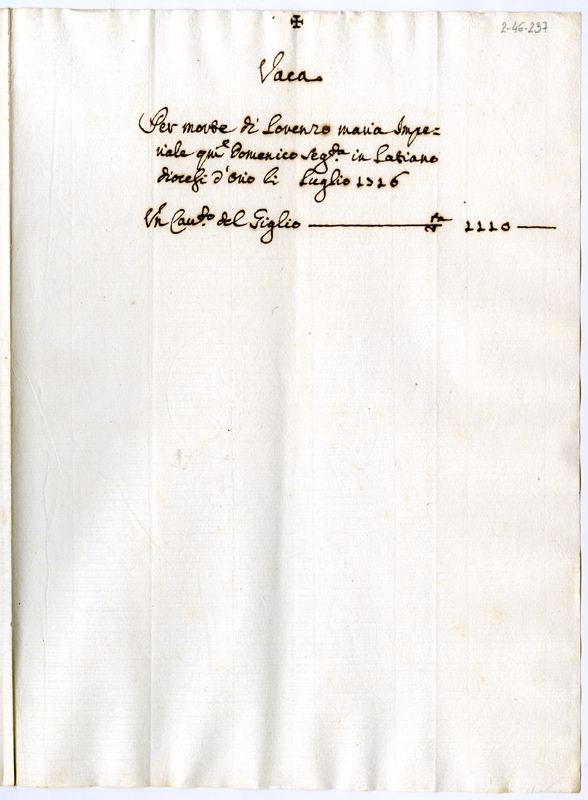 2-46-237
Vaca
Per morte di Lorenzo maria Impe=
riale qm̃ Domenico seg.ta in Latiano
diocesi d'Orio li Luglio 1716
Un Cau.to del Giglio 1110